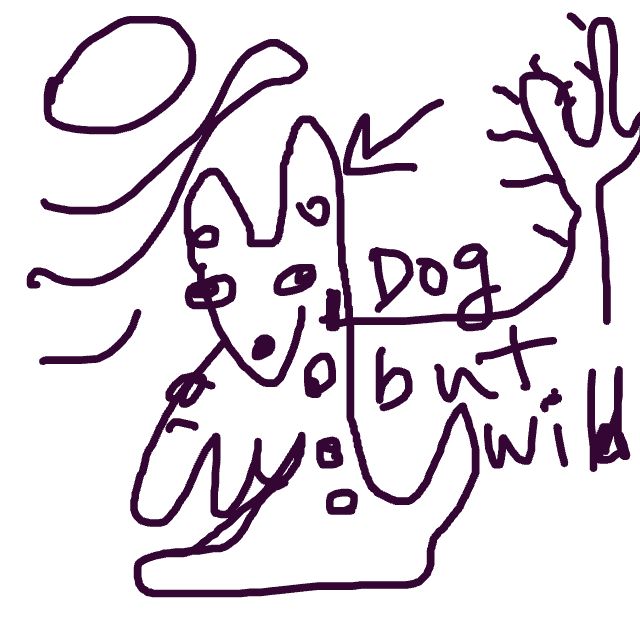 Dog
but
wild